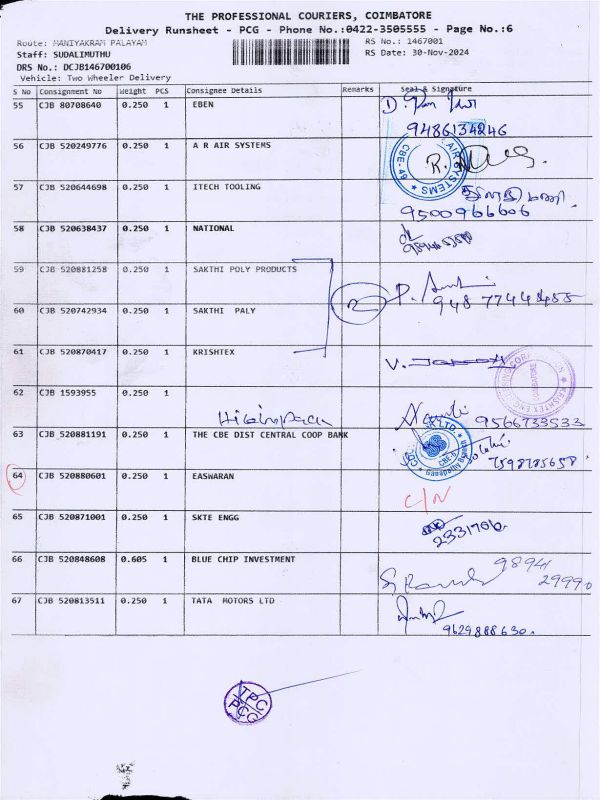 THE PROFESSIONAL COURIERS, COIMBATORE
Delivery Runsheet - PCG - Phone No.:0422-3505555 - Page No.:6
Route: MANIYAKRAM PALAYAM
RS No.: 1467001
Staff: SUDALIMUTHU
RS Date: 30-Nov-2024
DRS No.: DCJB146700106
Vehicle: Two Wheeler Delivery
S No Consignment No Weight PCS Consignee Details Remarks Seal & Signature
55 CJB 80708640 0.250 1 EBEN
9486134246
56 CJB 520249776 0.250 1 A R AIR SYSTEMS
57 CJB 520644698 0.250 1 ITECH TOOLING
9500966606
58 CJB 520638437 0.250 1 NATIONAL
59 CJB 520881258 0.250 1 SAKTHI POLY PRODUCTS
2
60 CJB 520742934 0.250 1 SAKTHI PALY
61 CJB 520870417 0.250 1 KRISHTEX
62 CJB 1593955 0.250 1
9566733533
63 CJB 520881191 0.250 1 THE CBE DIST CENTRAL COOP BANK
64 CJB 520880601 0.250 1 EASWARAN
C/N
65 CJB 520871001 0.250 1 SKTE ENGG
66 CJB 520848608 0.605 1 BLUE CHIP INVESTMENT
98941
29990
67 CJB 520813511 0.250 1 TATA MOTORS LTD
9629888630.
TPC
PCG